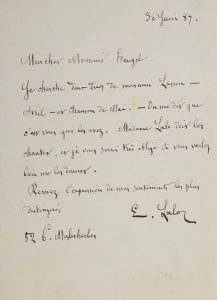 30 Juin 87.
Mon cher Monsieur
Je cherche deux duos de mon ami Lassen —
Avril — et Chanson de Mai. — On me dit que
c'est vous qui les avez. Madame Lalo doit les
chanter, et je vous serai très obligé si vous voulez
bien me les donner.
Recevez l'expression de mes sentiments les plus
distingués
E. Lalo
52 B. Malesherbes